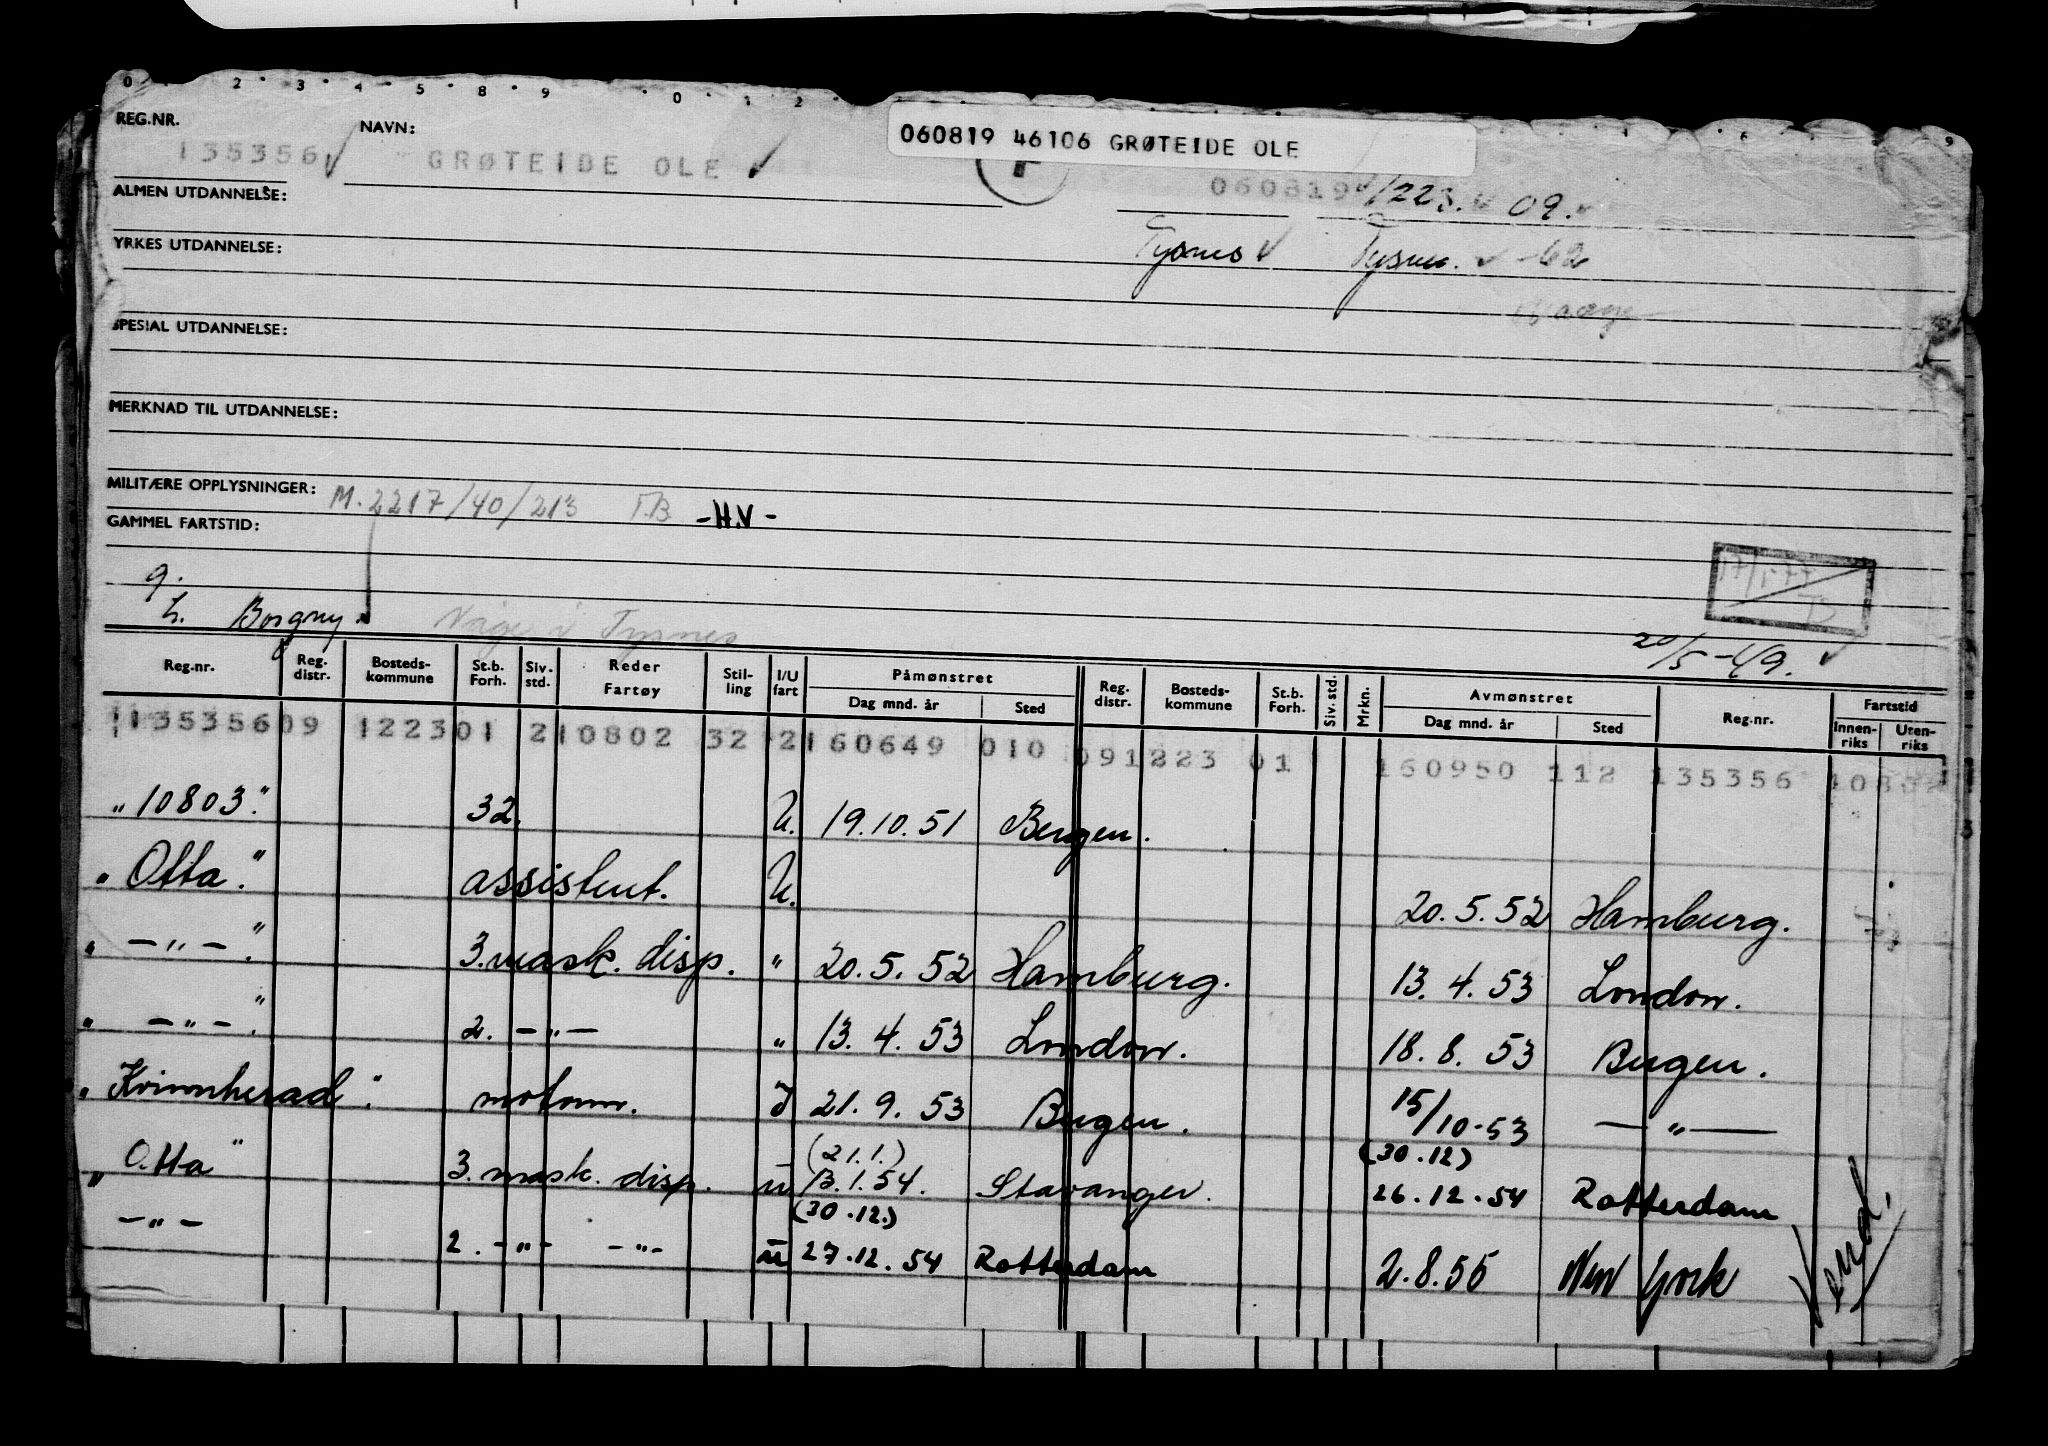 0 2 3 4 5 8 9 0 1 2
060819 46106 GRØTEIDE OLE
REG.NR. NAVN:
135356 GRØTEIDE OLE 060819 1223. 09.
ALMEN UTDANNELSE:
Tysnes Tysnes. -62
YRKES UTDANNELSE:
SPESIAL UTDANNELSE:
MERKNAD TIL UTDANNELSE:
MILITÆRE OPPLYSNINGER: M.2217/40/213 T.B. -H.V-
GAMMEL FARTSTID:
g.
h. Borgny. Våge i Tysnes
20/5-49.
Reg.nr. Reg. distr. Bosteds-kommune St.b. Forh. Siv. std. Reder Fartøy Stil-ling I/U fart Påmønstret Dag mnd. år Sted Reg. distr. Bosteds-kommune St.b. Forh. Siv. std. Mrkn. Avmønstret Dag mnd. år Sted Reg.nr. Fartstid Innen-riks Uten-riks
13535609 122301 210802 32 2160649 010 091223 01 160950 112 135356 10802
"10803". 32. U. 19.10.51 Bergen.
"Otta". assistent. U. 20.5.52 Hamburg.
" -"- ". 3.mask. disp. " 20.5.52 Hamburg. 13.4.53 London.
" -"- ". 2. -"- " 13.4.53 London. 18.8.53 Bergen.
"Kvinnherad". motorm. I 21.9.53 Bergen. 15/10-53 -"-
"Otta" 3. mask. disp. u (21.1.) 13.1.54. Stavanger. (30.12) 26.12.54 Rotterdam
-"- 2. -"- -"- u (30.12.) 27.12.54 Rotterdam 2.8.55 New York
Vend.